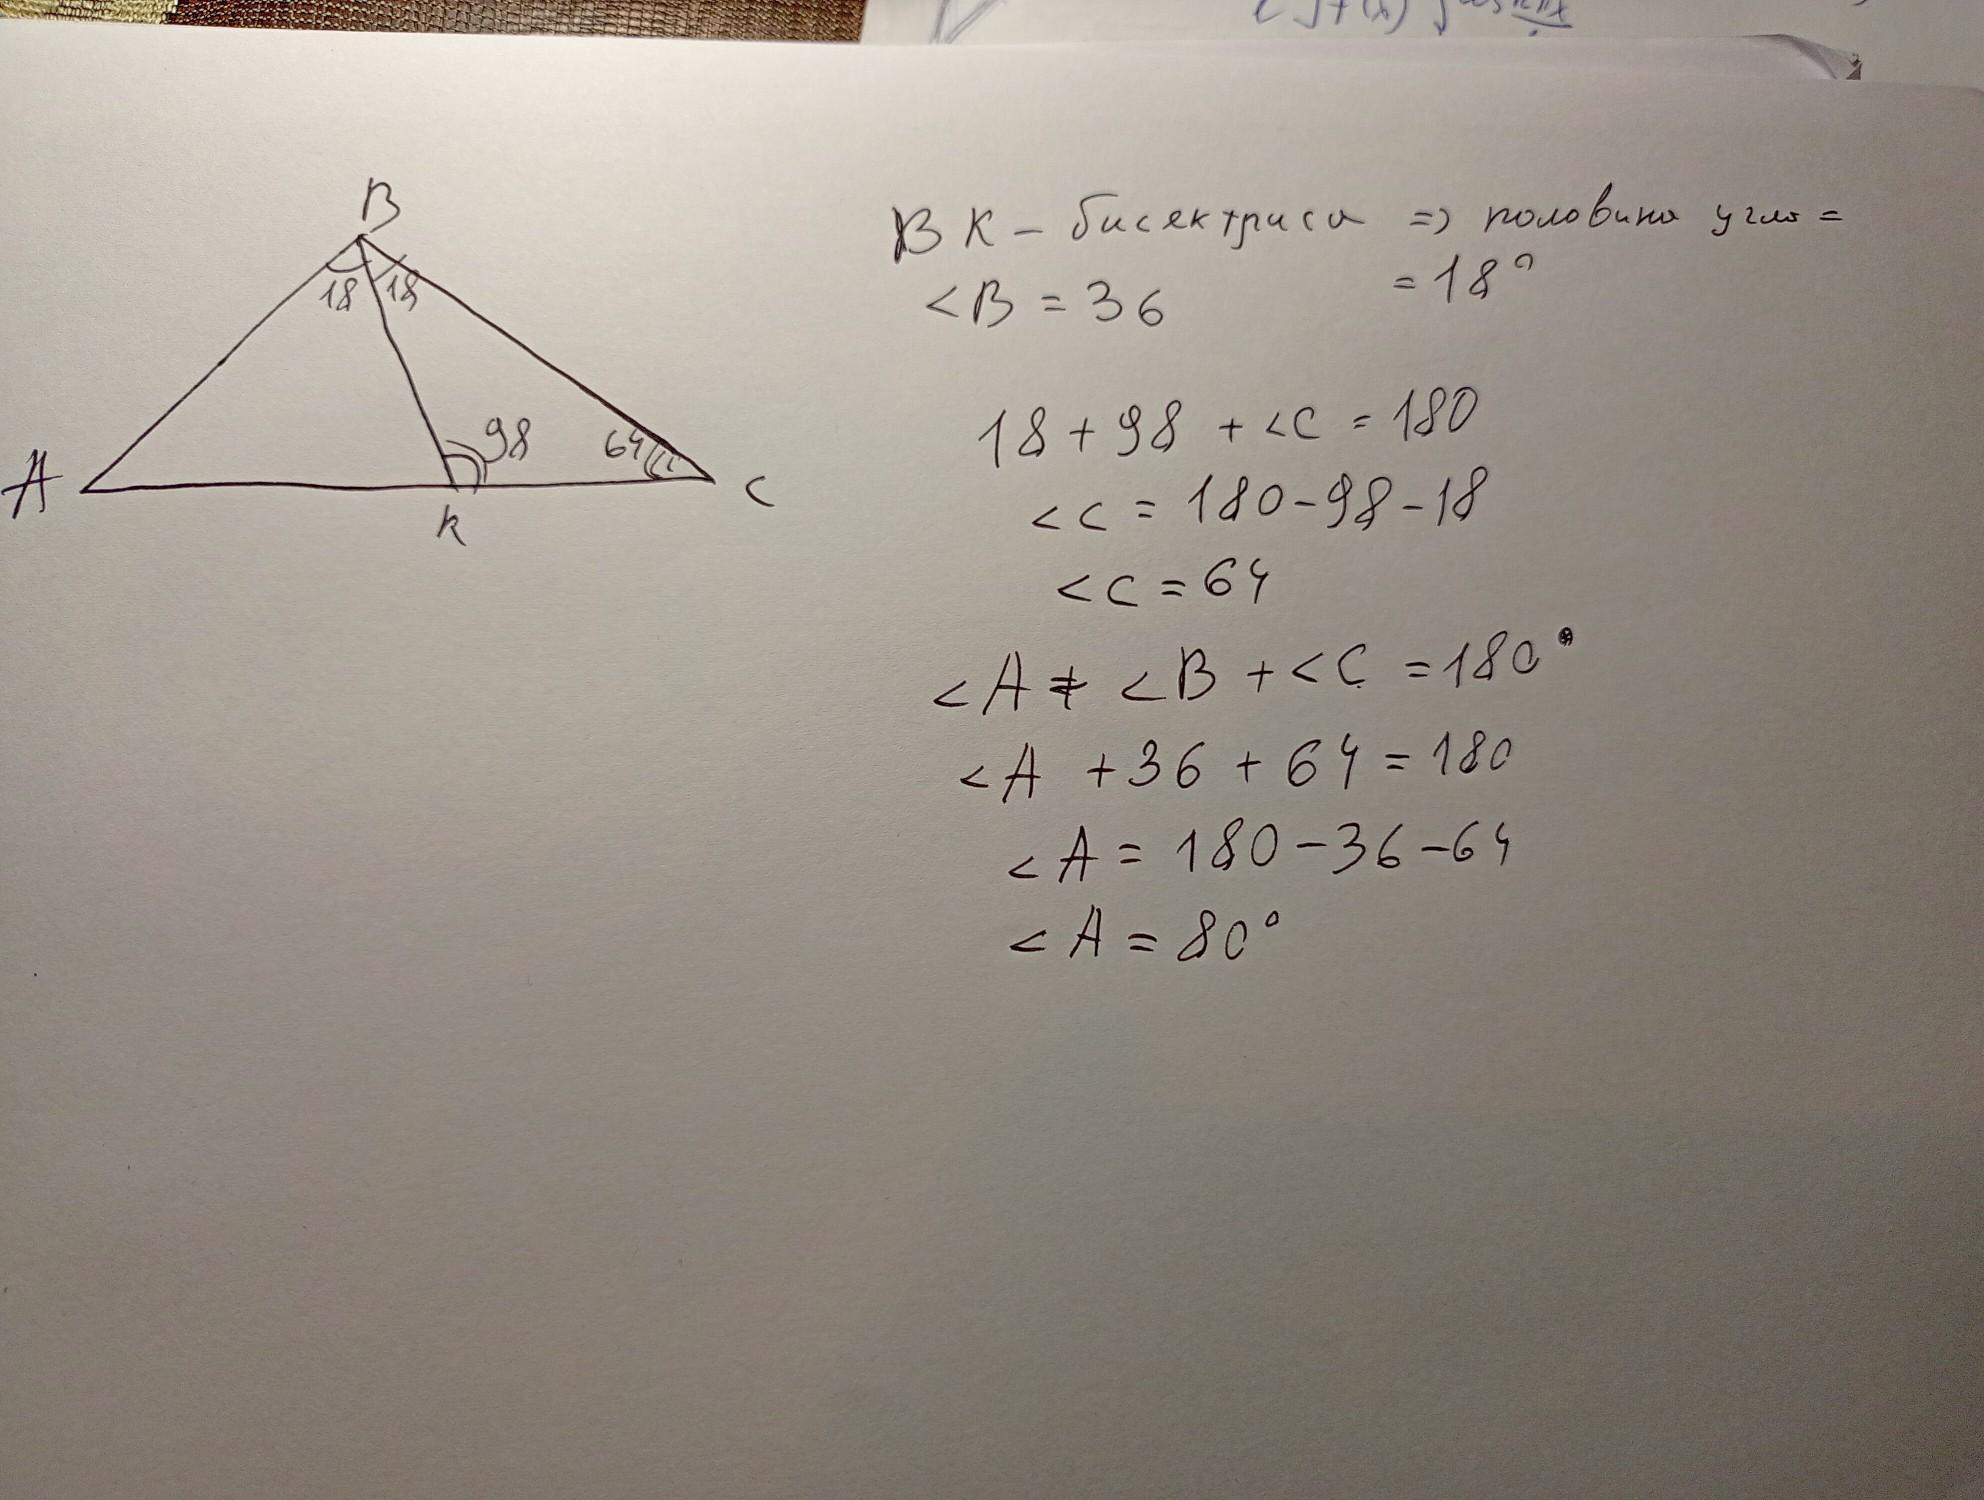 B
18 18
98
64
A
K
C
BK - бисектриса => половина угла =
= 18°
<B = 36
18 + 98 + <C = 180
<C = 180 - 98 - 18
<C = 64
<A + <B + <C = 180°
<A + 36 + 64 = 180
<A = 180 - 36 - 64
<A = 80°